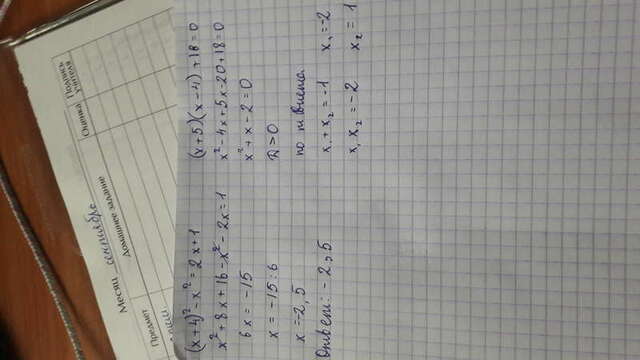 Месяц сентябрь
Предмет
Домашнее задание
Оценка
Подпись учителя
(x+4)²-x²=2x+1
x²+8x+16-x²-2x=1
6x=-15
x=-15:6
x=-2,5
Ответ: -2,5
(x+5)(x-4)+18=0
x²-4x+5x-20+18=0
x²+x-2=0
D>0
по т Виета
x₁+x₂=-1 x₁=-2
x₁x₂=-2 x₂=1